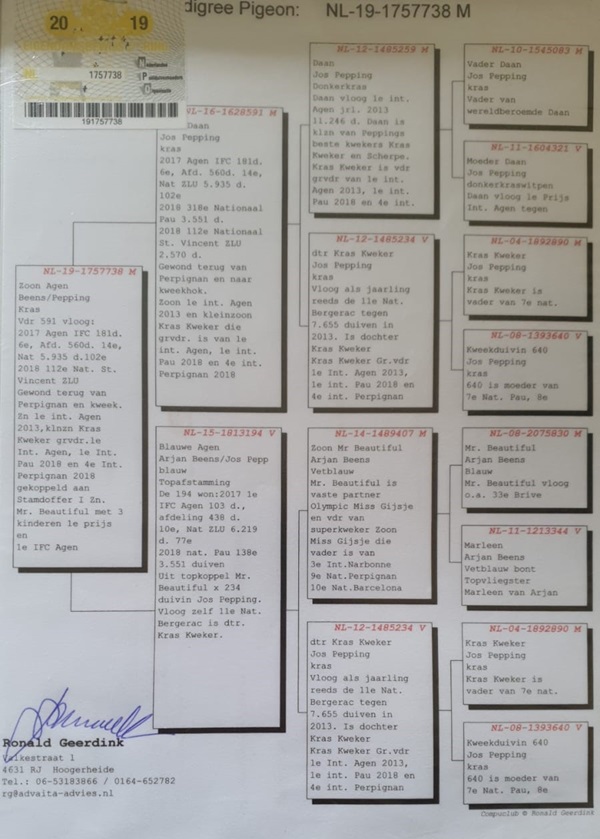 digree Pigeon: NL-19-1757738 M
20 19
1757738
191757738
NL-19-1757738 M
Zoon Agen
Beens/Pepping
Kras
Vdr 591 vloog:
2017 Agen IFC 181d.
6e, Afd. 560d. 14e,
Nat 5.935 d.102e
2018 112e Nat. St.
Vincent ZLU
Gewond terug van
Perpignan en kweek.
Zn 1e int. Agen
2013,klnzn Kras
Kweker grvdr.1e
Int. Agen, 1e Int.
Pau 2018 en 4e Int.
Perpignan 2018
gekoppeld aan
Stamdoffer I Zn.
Mr. Beautiful met 3
kinderen 1e prijs
en
1e IFC Agen
NL-16-1628591 M
Daan
Jos Pepping
kras
2017 Agen IFC 181d.
6e, Afd. 560d. 14e,
Nat ZLU 5.935 d.
102e
2018 318e Nationaal
Pau 3.551 d.
2018 112e Nationaal
St. Vincent ZLU
2.570 d.
Gewond terug van
Perpignan en naar
kweekhok.
Zoon 1e int. Agen
2013 en kleinzoon
Kras Kweker die
grvdr. is van 1e
int. Agen, 1e int.
Pau 2018 en 4e int.
Perpignan 2018
NL-15-1813194 V
Blauwe Agen
Arjan Beens/Jos Pepp
blauw
Topafstamming
De 194 won:2017 1e
IFC Agen 103 d.,
afdeling 438 d.
10e, Nat ZLU 6.219
d. 77e
2018 nat. Pau 138e
3.551 duiven
Uit topkoppel Mr.
Beautiful x 234
duivin Jos Pepping.
Vloog zelf 11e Nat.
Bergerac is dtr.
Kras Kweker.
NL-12-1485259 M
Daan
Jos Pepping
Donkerkras
Daan vloog 1e int.
Agen jrl. 2013
11.246 d. Daan is
klzn van Peppings
beste kwekers Kras
Kweker en Scherpe.
Kras Kweker is vdr
grvdr van 1e int.
Agen 2013, 1e int.
Pau 2018 en 4e int.
NL-12-1485234 V
dtr Kras Kweker
Jos Pepping
kras
Vloog als jaarling
reeds de 11e Nat.
Bergerac tegen
7.655 duiven in
2013. Is dochter
Kras Kweker
Kras Kweker Gr.vdr
1e Int. Agen 2013,
1e int. Pau 2018 en
4e int. Perpignan
NL-14-1489407 M
Zoon Mr Beautiful
Arjan Beens
Vetblauw
Mr. Beautiful is
vaste partner
Olympic Miss Gijsje
en vdr van
superkweker Zoon
Miss Gijsje die
vader is van
3e Int.Narbonne
9e Nat.Perpignan
10e Nat.Barcelona
NL-12-1485234 V
dtr Kras Kweker
Jos Pepping
kras
Vloog als jaarling
reeds de 11e Nat.
Bergerac tegen
7.655 duiven in
2013. Is dochter
Kras Kweker
Kras Kweker Gr.vdr
1e Int. Agen 2013,
1e int. Pau 2018 en
4e int. Perpignan
NL-10-1545083 M
Vader Daan
Jos Pepping
kras
Vader van
wereldberoemde Daan
NL-11-1604321 V
Moeder Daan
Jos Pepping
donkerkraswitpen
Daan vloog 1e Prijs
Int. Agen tegen
NL-04-1892890 M
Kras Kweker
Jos Pepping
kras
Kras Kweker is
vader van 7e nat.
NL-08-1393640 V
Kweekduivin 640
Jos Pepping
kras
640 is moeder van
7e Nat. Pau, 8e
NL-08-2075830 M
Mr. Beautiful
Arjan Beens
Blauw
Mr. Beautiful vloog
o.a. 33e Brive
NL-11-1213344 V
Marleen
Arjan Beens
Vetblauw bont
Topvliegster
Marleen van Arjan
NL-04-1892890 M
Kras Kweker
Jos Pepping
kras
Kras Kweker is
vader van 7e nat.
NL-08-1393640 V
Kweekduivin 640
Jos Pepping
kras
640 is moeder van
7e Nat. Pau, 8e
Ronald Geerdink
Valkestraat 1
4631 RJ Hoogerheide
Tel.: 06-53183866 / 0164-652782
rg@advaita-advies.nl
Compuclub © Ronald Geerdink